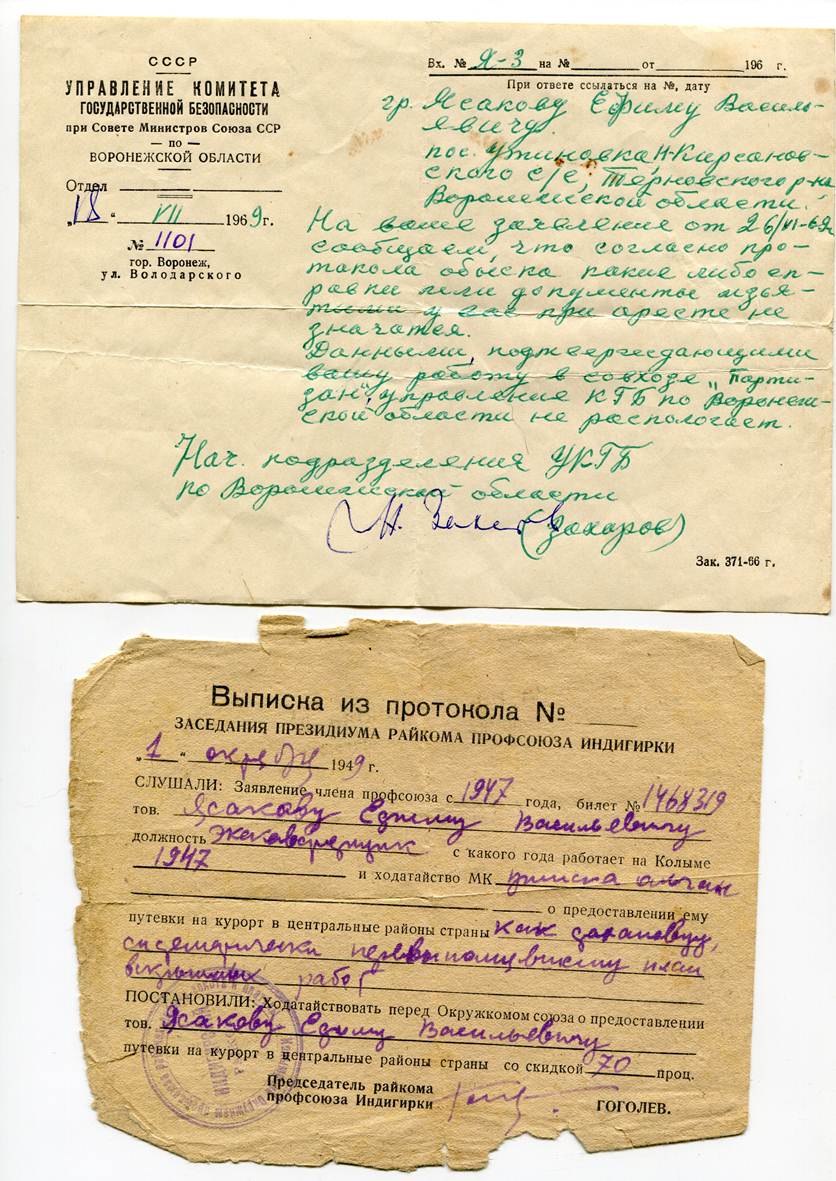 СССР
УПРАВЛЕНИЕ КОМИТЕТА
ГОСУДАРСТВЕННОЙ БЕЗОПАСНОСТИ
при Совете Министров Союза ССР
— по —
ВОРОНЕЖСКОЙ ОБЛАСТИ
Отдел
„18“ VII 1969 г.
№ 1101
гор. Воронеж,
ул. Володарского
Вх. № Я-3 на № от 196 г.
При ответе ссылаться на №, дату
гр. Ясакову Ефиму Василь-
евичу.
пос. Ужиновка, Н-Кирсанов-
ского с/с, Терновского р-на
Воронежской области.
На ваше заявление от 26/VI-69г
сообщаем, что согласно про-
такола обыска какие либо сп-
равки или документы изъя-
тыми у вас при аресте не
значатся.
Данными, подтверждающими
вашу работу в совхозе „Парти-
зан", управление КГБ по Воронеж-
ской области не распологает.
Нач. подразделения УКГБ
по Воронежской области
(Захаров)
Зак. 371-66 г.
Выписка из протокола №
ЗАСЕДАНИЯ ПРЕЗИДИУМА РАЙКОМА ПРОФСОЮЗА ИНДИГИРКИ
„1“ октября 1949 г.
СЛУШАЛИ: Заявление члена профсоюза с 1947 года, билет № 1468319
тов. Ясакову Ефиму Васильевичу
должность экскаваторщик с какого года работает на Колыме
1947 и ходатайство МК прииска
о предоставлении ему
путевки на курорт в центральные районы страны как стахановцу,
систематически перевыполнявшему план
вскрышных работ
ПОСТАНОВИЛИ: Ходатайствовать перед Окружкомом союза о предоставлении
тов. Ясакову Ефиму Васильевичу
путевки на курорт в центральные районы страны со скидкой 70 проц.
Председатель райкома
профсоюза Индигирки
ГОГОЛЕВ.